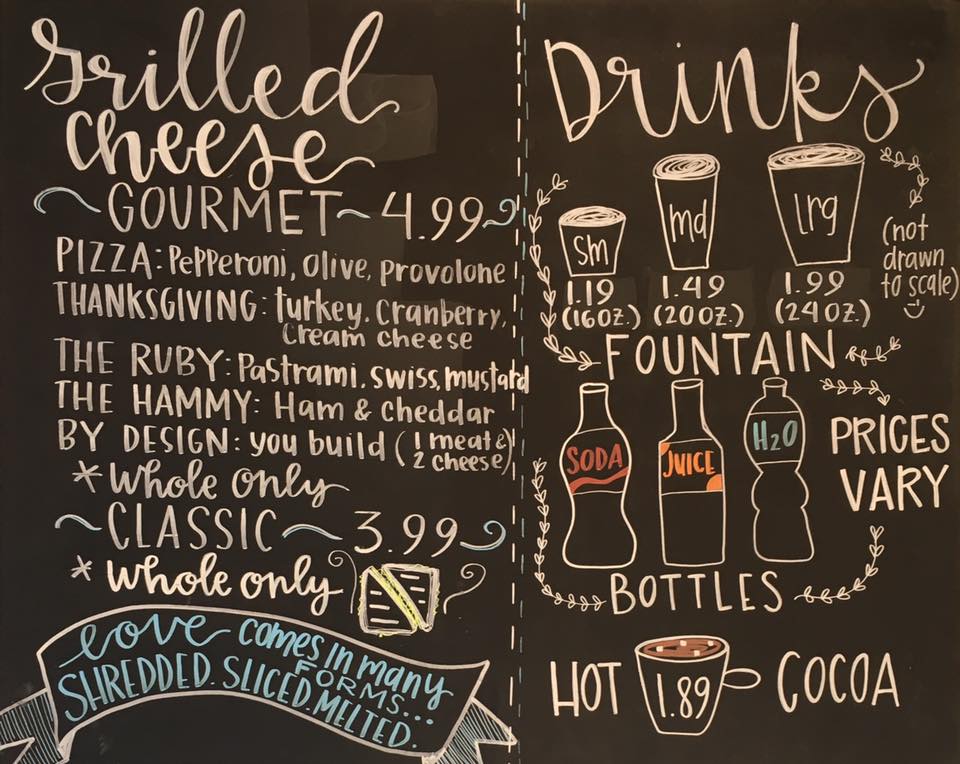 Grilled
Cheese
GOURMET ~ 4.99
PIZZA: Pepperoni, olive, provolone
THANKSGIVING: turkey, cranberry,
cream cheese
THE RUBY: Pastrami, swiss, mustard
THE HAMMY: Ham & cheddar
BY DESIGN: you build (1 meat &
2 cheese)
* Whole only
~ CLASSIC ~ 3.99
* Whole only
love comes in many
FORMS...
SHREDDED. SLICED. MELTED.
Drinks
sm
md
lrg
(not
drawn
to scale)
1.19
(16OZ.)
1.49
(20OZ.)
1.99
(24OZ.)
FOUNTAIN
SODA
JUICE
H2O
PRICES
VARY
BOTTLES
HOT 1.89 COCOA